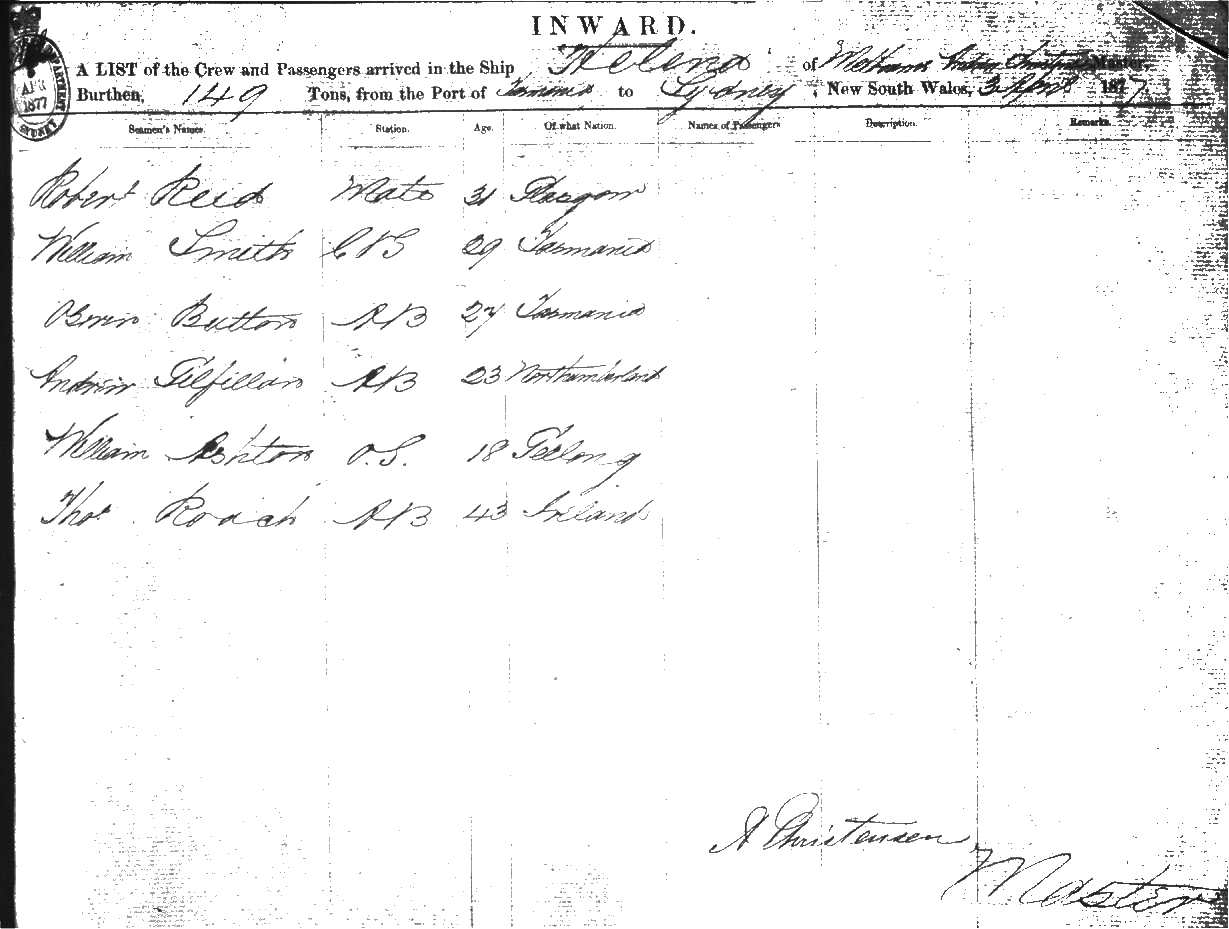 INWARD.
A LIST of the Crew and Passengers arrived in the Ship Helena of Master,
Burthen, 149 Tons, from the Port of to Sydney, New South Wales, 3 1877
APR
1877
SYDNEY
Seamen's Names. Station. Age. Of what Nation. Names of Passengers Description. Remarks.
Robert Reid Mate 31 Glasgow
William Smith C & S 29 Tasmania
Button AB 27 Tasmania
Andrew Gilfillan AB 23 Northumberland
William Ashton O.S. 18 Geelong
Thos Roach AB 43 Ireland
A Christensen
Master